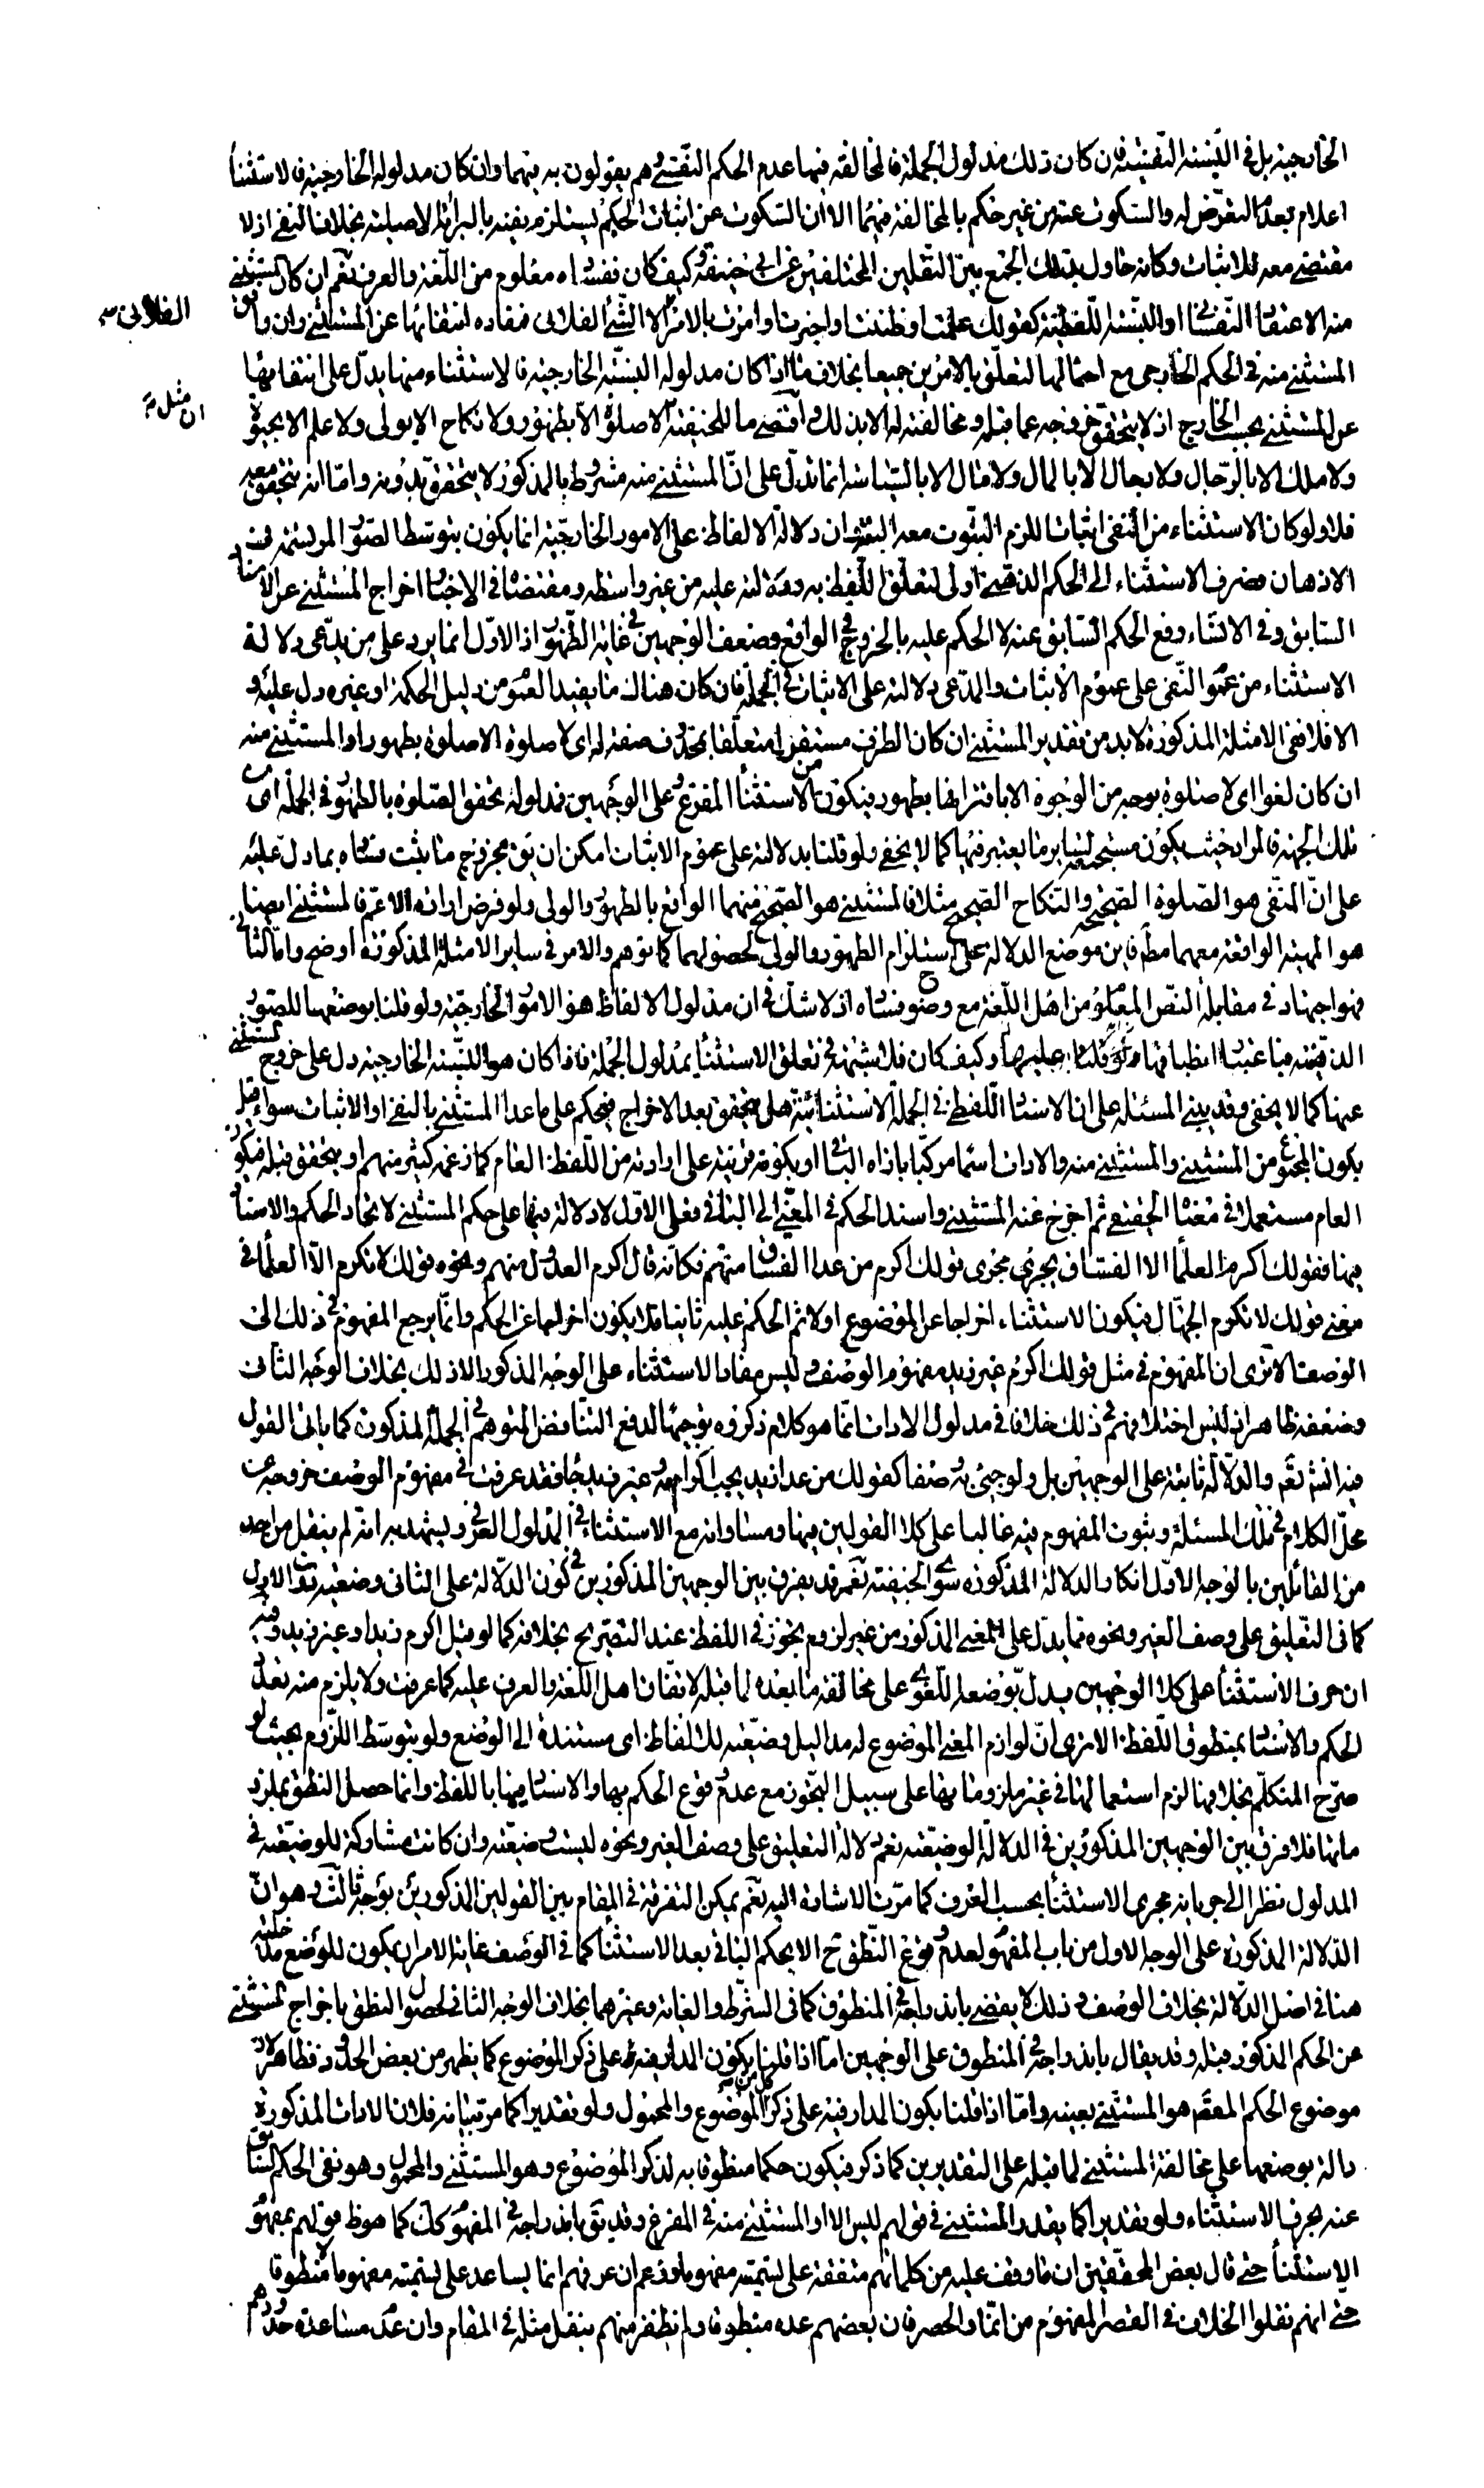 الخارجية بل في النسبة النفسية فان كان ذلك مدلول الجملة فالمخالفة فيها عدم الحكم النفسي وهم يقولون به فيهما وان كان مدلوله الخارجية فالاستثناء
اعلام بعدم التعرض له والسكوت عنه من غير حكم بالمخالفة فيهما الا ان السكوت عن اثبات الحكم يستلزم نفيه بالبرائة الاصلية بخلاف النفي اذ لا
مقتضى معه للاثبات وكانه حاول بذلك الجمع بين النقلين المختلفين عن ابي حنيفة وكيف كان ففساده معلوم من اللغة والعرف نعم ان كان المستثنى
منه الاعتقاد النفساني او النسبة اللفظية كقولك علمت او ظننت او اخبرت او امرت بالامر الا الشئ الفلاني فمفاده انتفائها عن المستثنى وان وافق
الفلاني
المستثنى منه في الحكم الخارجي مع احتمالها لتعلق بالامرين جميعا بخلاف ما اذا كان مدلوله النسبة الخارجية فالاستثناء منها يدل على انتفائها
ان مثل
عن المستثنى بحسب الخارج اذ لا يتحقق خروجه عما قبله ومخالفته له الا بذلك واقتصى ما للحنفية لا صلوة الا بطهور ولا نكاح الا بولي ولا علم الا بحيوة
ولا ملك الا بالرجال ولا رجال الا بالمال ولا مال الا بالسياسة انما تدل على ان المستثنى منه مشروط بالمذكور لا يتحقق بدونه واما انه يتحقق معه
فلا ولو كان الاستثناء من النفي اثباتا للزم الثبوت معه البتة ان دلالة الالفاظ على الامور الخارجية انما يكون بتوسط الصور المرتسمة في
الاذهان فصرف الاستثناء الى الحكم الذهني اولى لتعلق اللفظ به ودلالته عليه من غير واسطة ومقتضاه في الاخبار اخراج المستثنى عن الاسناد
السابق وفي الانشاء رفع الحكم السابق عنه لا الحكم عليه بالخروج في الواقع وضعف الوجهين في غاية الظهور اذ الاول انما يرد على من يدعى دلالة
الاستثناء من عموم النفي على عموم الاثبات والمدعى دلالته على الاثبات في الجملة فان كان هناك ما يفيد العموم من دليل الحكمة او غيره دل عليه و
الا فلا ففي الامثلة المذكورة لا بد من تقدير المستثنى ان كان الظرف مستقرا متعلقا بمحذوف صفة له اى لا صلوة الا صلوة بطهور او المستثنى منه
ان كان لغوا اى لا صلوة بوجه من الوجوه الا باقترانها بطهور فيكون من الاستثناء المفرغ وعلى الوجهين فمدلوله تحقق الصلوة بالطهور في الجملة اى من
تلك الجهة فالمراد حيث يكون مستجمعة لساير ما يعتبر فيها كما لا يخفى ولو قلنا بدلالته على عموم الاثبات امكن ان يق بخروج ما يثبت فساده بما دل عليه
على ان المنفي هو الصلوة الصحيحة والنكاح الصحيح مثلا فالمستثنى هو الصحيح منهما الواقع بالطهور والولي ولو فرض ارادة الاعم فالمستثنى ايضا
هو المهية الواقعة معهما مط فاين موضع الدلالة على استلزام الطهور والولي لحصولهما كما توهم والامر في ساير الامثلة المذكورة اوضح واما الثاني
فهو اجتهاد في مقابلة النص المعلوم من اهل اللغة مع وضوح فساده اذ لا شك في ان مدلول الالفاظ هو الامور الخارجية ولو قلنا بوضعها للصور
الذهنية فباعتبار انطباقها عليها وكيف كان فلا شبهة في تعلق الاستثناء بمدلول الجملة فاذا كان هو النسبة الخارجية دل على خروج المستثنى
عنها كما لا يخفى وقد يبنى المسئلة على ان الاسناد اللفظي في الجملة الاستثنائية هل يتحقق بعد الاخراج فيحكم على ما عدا المستثنى بالنفي او الاثبات سواء قيل
بكون المجموع من المستثنى والمستثنى منه والاداة اسما مركبا بازاء الباقي او بكونه قرينة على ارادته من اللفظ العام كما زعمه كثير منهم او يتحقق قبله فيكون
العام مستعملا في معناه الحقيقي ثم اخرج عنه المستثنى واسند الحكم في المعنى الى الباقي فعلى الاول لا دلالة فيها على حكم المستثنى لاتحاد الحكم والاسناد
فيها فقولك اكرم العلماء الا الفساق يجرى مجرى قولك اكرم من عدا الفساق منهم فكانه قال اكرم العدول منهم ونحوه قولك لا تكرم الا العلماء في
معنى قولك لا تكرم الجهال فيكون الاستثناء اخراجا عن الموضوع اولا ثم الحكم عليه ثانيا فلا يكون اخراجا عن الحكم وانما يرجع المفهوم في ذلك الى
الوصف الا ترى ان المفهوم في مثل قولك اكرم غير زيد مفهوم الوصف وليس مفاد الاستثناء على الوجه المذكور الا ذلك بخلاف الوجه الثاني
وضعفه ظاهر اذ ليس اختلافهم في ذلك خلافا في مدلول الاداة انما هو كلام ذكروه توجيها لدفع التناقض المتوهم في الجملة المذكورة كما ياتي القول
فيه انش تعم والدلالة ثابتة على الوجهين بل ولو جئ به وصفا كقولك من عدا زيد يجب اكرامه وغير زيد جا فقد عرفت في مفهوم الوصف خروجه عن
محل الكلام في تلك المسئلة وثبوت المفهوم فيه غالبا على كلا القولين فيها ومساواته مع الاستثناء في المدلول العرفي ويشهد به انه لم ينقل من احد
من القائلين بالوجه الاول انكار الدلالة المذكورة سوى الحنفية نعم قد يفرق بين الوجهين المذكورين في كون الدلالة على الثاني وضعية دون الاول
كما في التعليق على وصف الغير ونحوه مما يدل على المعنى المذكور من غير لزوم تجوز في اللفظ عند التصريح بخلافه كما لو قيل اكرم زيدا وغير زيد وفيه
ان حرف الاستثناء على كلا الوجهين يدل بوضعه اللغوي على مخالفة ما بعده لما قبله لاتفاق اهل اللغة والعرف عليه كما عرفت ولا يلزم منه تعدد
الحكم والاسناد بمنطوق اللفظ الا ترى ان لوازم المعنى الموضوع له مداليل وضعية للالفاظ اى مستندة الى الوضع ولو بتوسط اللزوم بحيث لو
صرح المتكلم بخلافها لزم استعمالها في غير ملزوماتها على سبيل التجوز مع عدم وقوع الحكم بها والاسناد فيها باللفظ وانما حصل النطق بملزو
ماتها فلا فرق بين الوجهين المذكورين في الدلالة الوضعية نعم دلالة التعليق على وصف الغير ونحوه ليست وضعية وان كانت مشاركة للوضعية في
المدلول نظرا الى جريانه مجرى الاستثناء بحسب العرف كما مرت الاشارة اليه نعم يمكن التفرقة في المقام بين القولين المذكورين بوجه ثالث وهو ان
الدلالة المذكورة على الوجه الاول من باب المفهوم لعدم وقوع النطق ح الا بحكم الباقي بعد الاستثناء كما في الوصف غاية الامر ان يكون للوضع مدخلية
هنا في اصل الدلالة بخلاف الوصف وذلك لا يقضى باندراجه في المنطوق كما في الشرط والغاية وغيرهما بخلاف الوجه الثاني لحصول النطق باخراج المستثنى
عن الحكم المذكور قبله وقد يقال باندراجه في المنطوق على الوجهين اما اذا قلنا بكون المدار فيه على ذكر الموضوع كما يظهر من بعض الحدود فظاهر لان
موضوع الحكم المعقم هو المستثنى بعينه واما اذا قلنا بكون المدار فيه على ذكر كل من الموضوع والمحمول ولو تقديرا كما مر بيانه فلان الاداة المذكورة
دالة بوضعها على مخالفة المستثنى لما قبله على التقديرين كما ذكر فيكون حكما منطوقا به لذكر الموضوع وهو المستثنى والمحمول وهو نفي الحكم السابق
عنه بحرف الاستثناء ولو تقديرا كما يقدر المستثنى في قولهم ليس الا او المستثنى منه في المفرغ وقد يق باندراجه في المفهوم كك كما هو ظ قولهم بمفهوم
الاستثناء حتى قال بعض المحققين ان ما وقف عليه من كلماتهم متفقة على تسميته مفهوما وزعم ان عرفهم انما يساعد على تسميته مفهوما لا منطوقا
حتى انهم نقلوا الخلاف في القصر المفهوم من انما والحصر فان بعضهم عده منطوقا ولم نظفر منهم بنقل مثله في المقام وان عدم مساعدة حدودهم